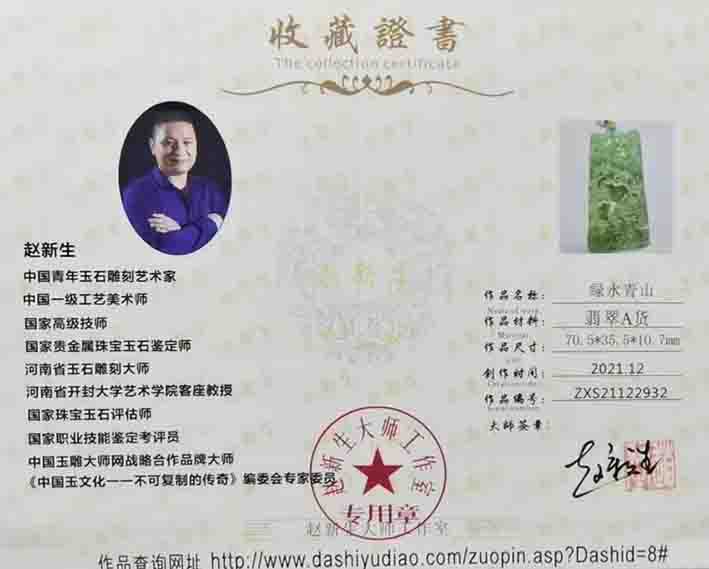 收藏證書
The collection certificate
赵新生
中国青年玉石雕刻艺术家
中国一级工艺美术师
国家高级技师
国家贵金属珠宝玉石鉴定师
河南省玉石雕刻大师
河南省开封大学艺术学院客座教授
国家珠宝玉石评估师
国家职业技能鉴定考评员
中国玉雕大师网战略合作品牌大师
《中国玉文化——不可复制的传奇》编委会专家委员
作品名称： 绿水青山
作品材料： 翡翠A货
作品尺寸： 70.5*35.5*10.7mm
创作时间： 2021.12
作品编号： ZXS21122932
大师签章：
赵新生
赵新生大师工作室
专用章
赵新生大师工作室
作品查询网址 http://www.dashiyudiao.com/zuopin.asp?Dashid=8#